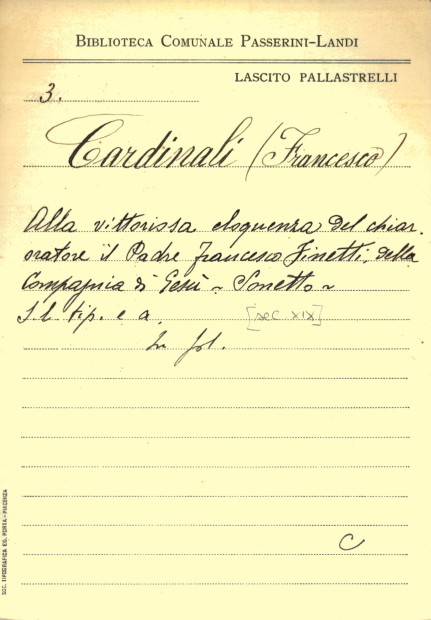 BIBLIOTECA COMUNALE PASSERINI-LANDI
LASCITO PALLASTRELLI
3.
Cardinali (Francesco)
Alla vittorissa eloquenza del chiar.
oratore il Padre Francesco Finetti, della
Compagnia di Gesù ~ Sonetto ~
S. l. tip. e a. [sec. XIX]
In fol.
C
SOC. TIPOGRAFICA ED. PORTA - PIACENZA